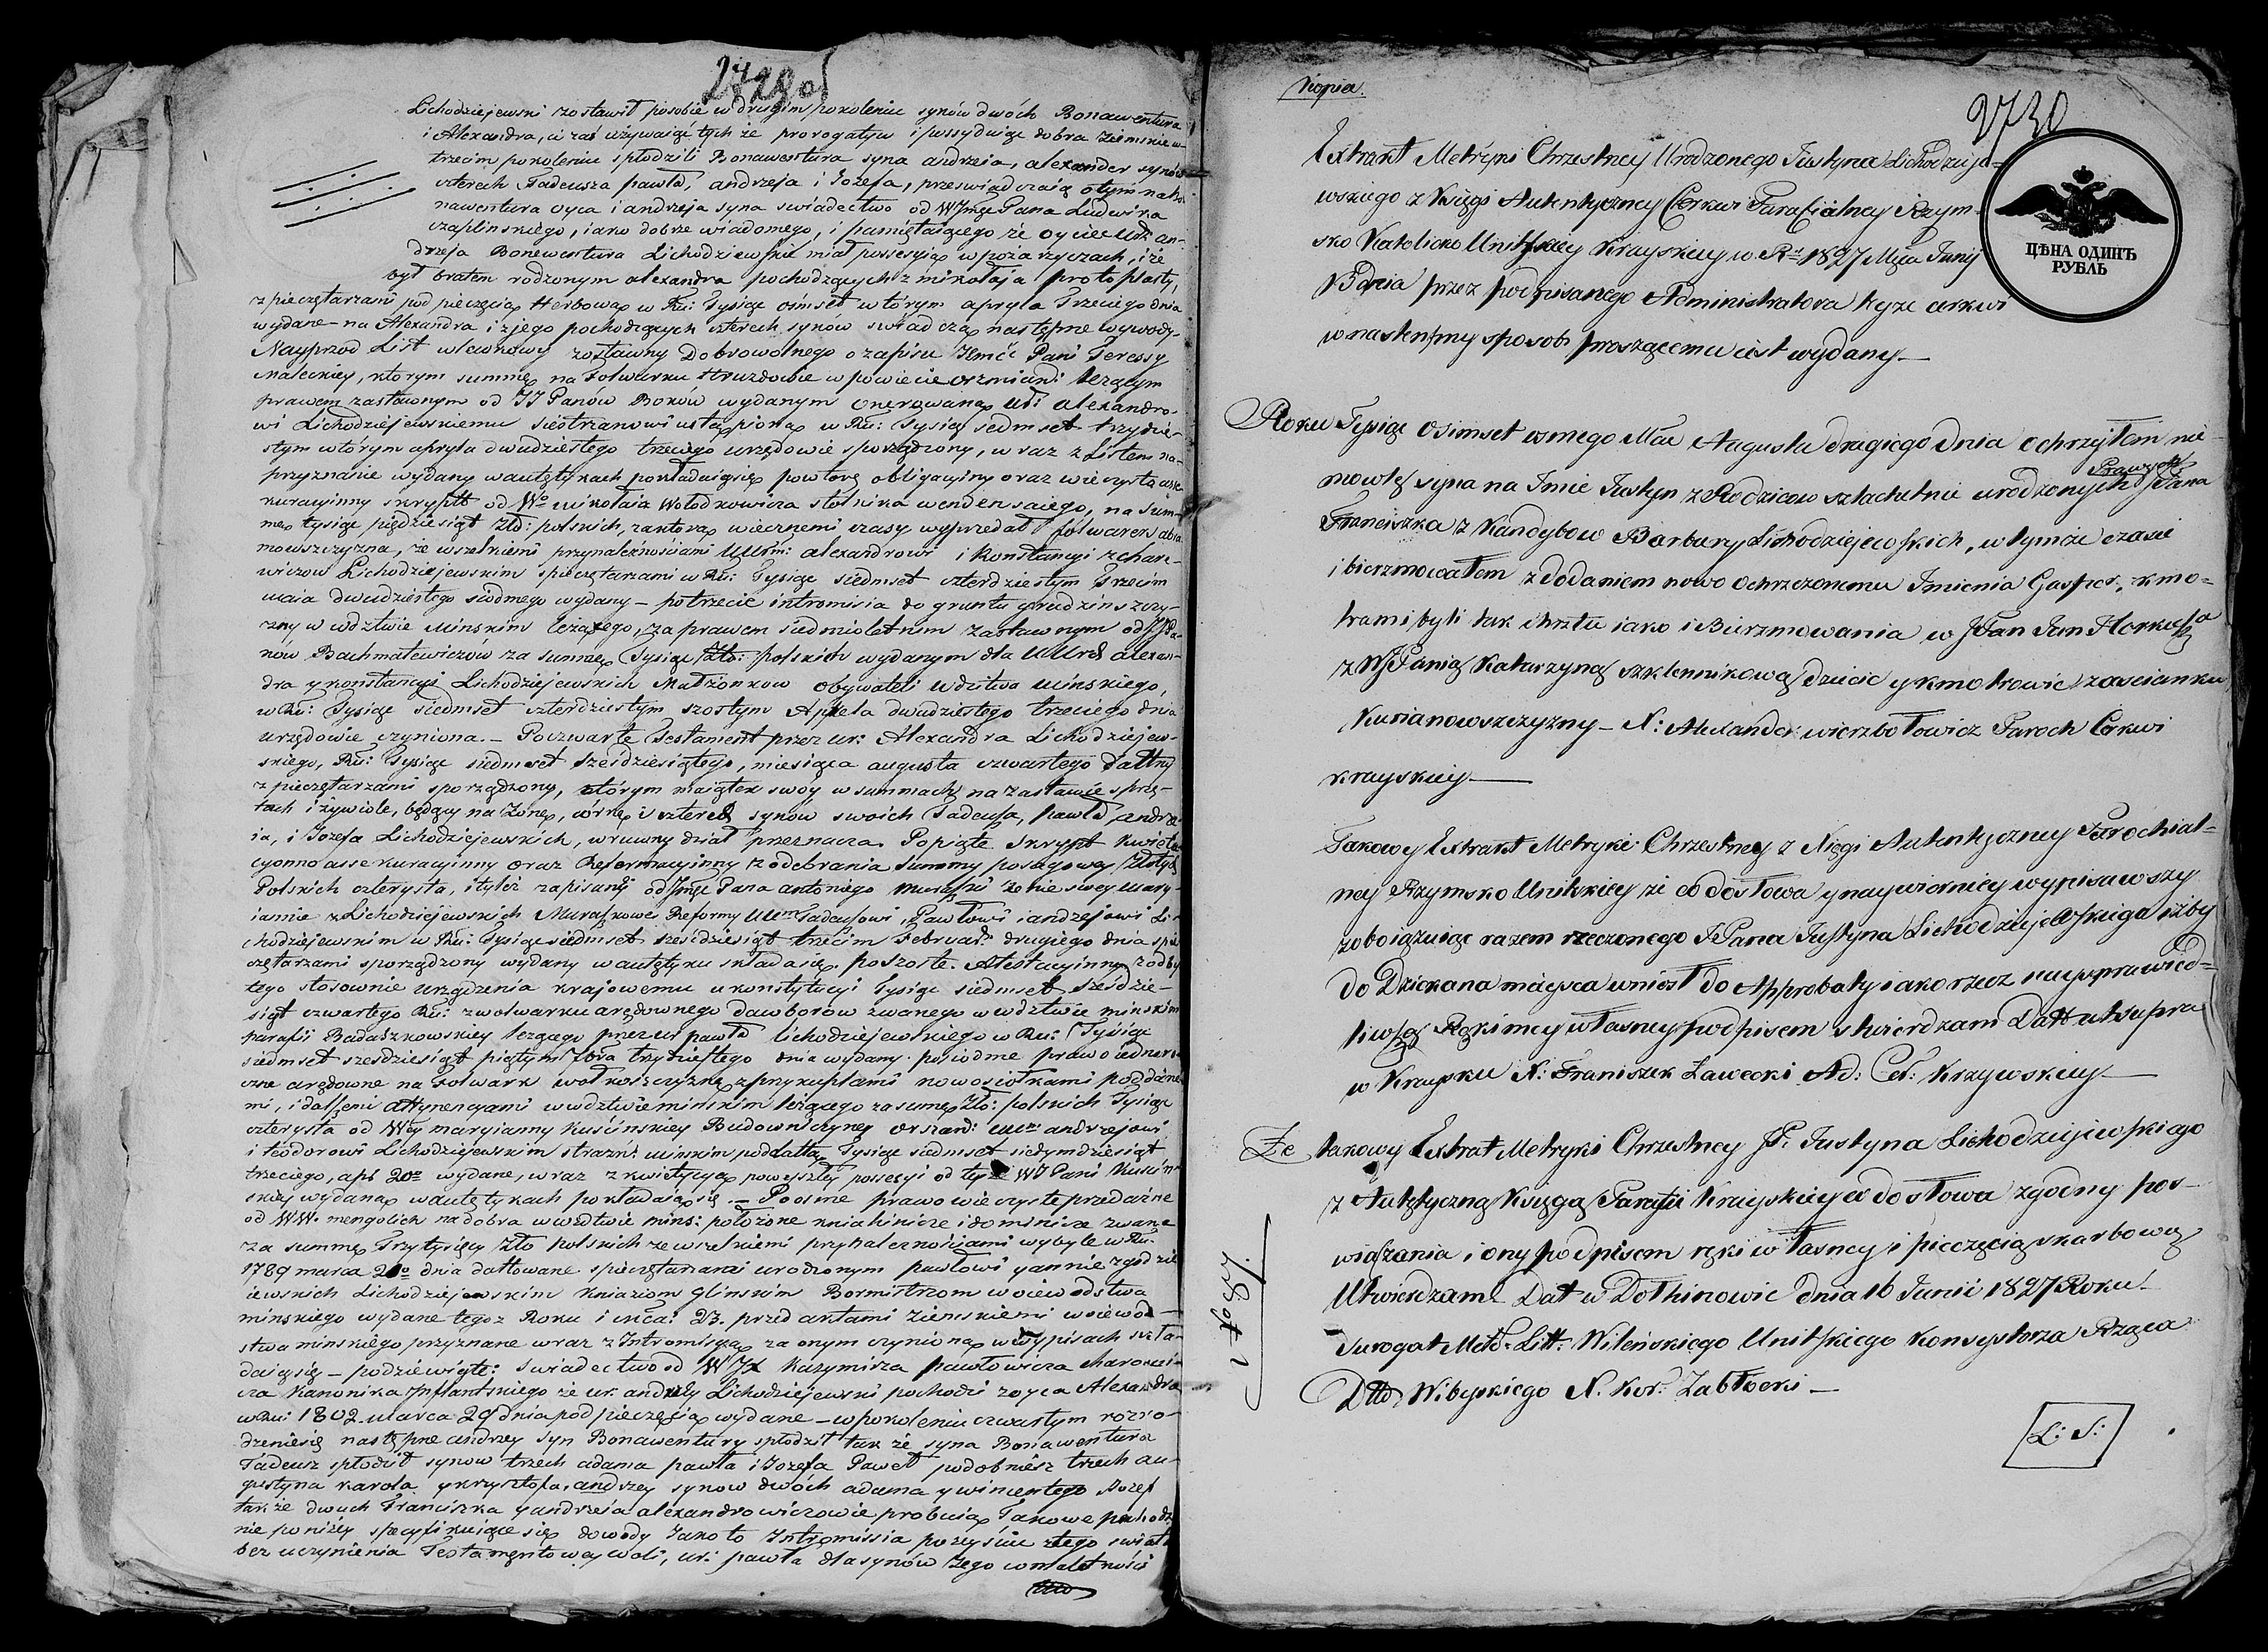 2729 об
Lichodziejewski zostawił posobie w drugim pokoleniu synów dwóch Bonawentura
i Alexandra, ci zaś używaiąc tych że prorogatyw i possydując dobra Ziemskie w
trzecim pokoleniu spłodzili Bonawentura syna andrzeia, alexander synów
czterech Tadeusza pawła, andrzeja i Jozefa, przeswiadczaią o tym na Bo
nawentura oyca i andrzeja syna swiadectwo od WJmę Pana Ludwika
czaplinskiego, iako dobrze wiadomego, i pamiętaiącego że oyciec Ur: an-
drzeja Bonewentura Lichodziewski miał possesyią w pożarzyczach, i że
był bratem rodzonym alexandra pochodzących z mikołaja protoplasty,
z pieczętarzami pod pieczęcią Herbową w Ru: Tysiąc ośmset wtórym apryla Trzeciego dnia
wydane na Alexandra i z jego pochodzących czterech synów swiadczą następne wywody.
Nayprzod List wlewkowy zostawny Dobrowolnego o zapisu Jemći Pani Teressy
Maleckiey, ktorym summę na folwarku Hruzdowie w powiecie oszmian: leżącym
prawem zastawnym od JJ Panów Bokow wydanym onerowaną Ur: alexandro-
wi Lichodziejewskiemu siestrzanowi ustąpioną w Ru: Tysiąc sedmset trzydzie-
stym wtórym apryla dwudziestego trzeciego urzędowie sporządzony, wraz z Listem na-
przyznanie wydany wautętykach pokładaiąsię powtorę obligacyiny oraz wieczysto asse
kuracyinny skryptt od Wo mikołaia Wołodkowicza stolnika wendenskiego, na sum-
mę tysiąc pięćdziesiąt Zło: polskich, zaktorą wiecznemi czasy wyprzedał folwarek abra
mowszczyzna, że wszelkiemi przynależnościami UUrm: alexandrowi i Konstancyi z chare-
wiczow Lichodziejewskim spieczętarzami w Ru: Tysiąc siedmset czterdziestym Trzecim
maia dwudziestego siodmego wydany – potrzecie intromisia do gruntu grudzinszczy-
zny w wdztwie Minskim leżącego, za prawem siedmioletnim zastawnym od JJPa-
now Bachmatewiczow za summę Tysiąc Zło: polskich wydanym dla UUrd alexan-
dra y konstancyi Lichodziejewskich Małżonkow obywateli wdztwa mińskiego,
w Ru: Tysiąc siedmset czterdziestym szostym Apryla dwudziestego trzeciego dnia
urzędowie czyniona. – Poczwarte Testament przez ur: Alexandra Lichodziejew-
skiego, Ru: Tysiąc siedmset sześdziesiątego, miesiąca augusta czwartego datłny
z pieczętarzami sporządzony, którym maiątek swoy w summach na zastawie sprzę-
tach i żywiole, będący na żonę, córkę i czterech synów swoich Tadeusza, pawła andrze
ia, i Jozefa Lichodziejewskich, wruwny dział przeznacza. Popiąte skrypt kwieta
cyonno assekuracyinny oraz Reformacyinny z odebrania summy posagowey Złotych
Polskich czterysta, i tyleż zapisany od Jmę Pana antoniego muraszki żenie swey mary-
iannie z Lichodziejewskich Muraszkowey Reformy UUrm Tadeuszowi, Pawłowi i andrzejowi Li-
chodziejewskim w Ru: Tysiąc siedmset sześćdziesiąt trzecim Februari drugiego dnia spie
czętarzami sporządzony wydany wautętyku składasię. poszoste. Atestacyinny z odby
tego stosownie urządzenia krajowemu ukonstytucyi Tysiąc siedmset sześdzie-
siąt czwartego Ru: zwolwarku arędownego dawborow zwanego w wdztwie mińskim
parafii Radaszkowskiey leżącego przez ur pawła Lichodziejewskiego w Ru: Tysiąc
siedmset szesdziesiąt piątym 7bra trzydziestego dnia wydany. posiodme prawo iedno
czne arędowne na folwark wołkoszczyznę z przykupłami nowosiołkami poddane-
mi, i dalszemi attynencyami w wdztwie mińskim leżącego za sumę Zło: polskich Tysiąc
czterysta od Wey maryianny kuścinskiey Budowniczyney orszań: Urm andrzejowi
i teodorowi Lichodziejewskim strażni: minskim poddattą Tysiąc siedmset siedymdziesiąt
trzeciego, apl 20a wydane, wraz z kwietycyą powyszłey possesyi od tey że WJ Pani kuścin
skiey wydaną wautętykach pokładaiąsię. – Poosme prawo wieczysteprzedażne
od WW. mengolich na dobra w wdztwie mins: położone kniahinicze i dominicze zwane
za summę Trzytysięcy Zło polskich zewszelkiemi przynależnościami wybyte w Ru:
1789 marca 20o dnia dattowane spieczętarzami urodzonym pawłowi yannie z godzie
iewskich Lichodziejewskim kniaziom Glinskim Bormistrzom woiewodstwa
minskiego wydane tegoż Roku i mca: 23. przed aktami Ziemskiemi woiewod-
stwa minskiego przyznane wraz z Intromisyą za onym czynioną w wypisach skła-
daiąsię – podziewiąte: swiadectwo od WJX Kazymirza pawłowicza charowi-
cza Kanonika Inflantskiego że ur. andrzey Lichodziejewski pochodzi z oyca Alexandra
w Ru: 1802. marca 29 dnia pod pieczęcią wydane – w pokoleniu czwartym rozro-
dzeniesię następne andrzey syn Bonawentury spłodził tak że syna Bonawentura
Tadeusz spłodził synow trzech adama pawła i Jozefa Paweł podobnież trzech au-
gustyna karola y krysztofa, andrzey synow dwóch adama y wincentego Jozef
także dwuch Franciszka y andrzeia alexandrowiczowie probuią Takowe pochodze
nie poniżey specyfikuiącesię dowody Jako to Intromissia pozeysciu z tego swiata
bez uczynienia Testamentowey woli, ur: pawła dla synów Jego w małoletności
Kopia.
2730
Extrakt Metryki Chrzestney Urodzonego Justyna Lichodzieje=
wskiego z Księgi Autentyczney Cerkwi Parafialney Rzym-
sko Katolicko Unitskiey Krayskiey w Ru 1827 Mca Junij
13 dnia przez podpisanego Administratora teyze cerkwi
w nastenpny sposob proszącemu iest wydany. –
ЦѢНА ОДИНЪ
РУБЛЬ
Roku Tysiąc Osimset osmego Mca Augusta drugiego dnia ochrzyłem nie-
mowlę syna na Imie Justyn z Rodzicow szlachetnie urodzonych Prawych JPana
Franciszka z Kandybow Barbary Lichodziejewskich, w tymże czasie
i bierzmowałem z dodaniem nowo ochrzczonemu Imienia Gasper, kmo=
trami byli tak chrztu iako i Bierzmowania w JPan Jan Horkusza
z WJPanią Katarzyną szklennikową dziecie y kmotrowie z zascianku
Kurianowszczyzny – X: Alexander wierzbołowicz Paroch Cerkwi
krayskiey –
Takowy Extrakt Metryki Chrzestney z Xięgi Autentyczney Parochial=
ney Rzymsko Unitskiey że co do słowa y naywierniey wypisawszy
zoboiązuiąc razem rzeczonego JPana Justyna Lichodziejewskiego iżby
do Dziekana mieysca wniosł do Approbaty iako rzecz naysprawied=
liwszą Ręki mey własney podpisem stwierdzam Datt ut supra
w Kraysku X: Franiszek Ławecki Ad: Cer: Krayskiey –
Że takowy Extrat Metryki Chrzestney JP. Justyna Lichodziejewskiego
z Autętyczną Księgą Parafii Krayskiey co do słowa zgodny pos-
wiadzania i ony podpisem ręki własney i pieczęcią skarbową
Utwierdzam Dat w Dołhinowie dnia 16 Junii 1827 Roku.
Surogat Metro: Litt: Wileńskiego Unitskiego Konsystorza Rządca
Dttu Wileyskiego X. Kor. Zabłocki –
L: S: